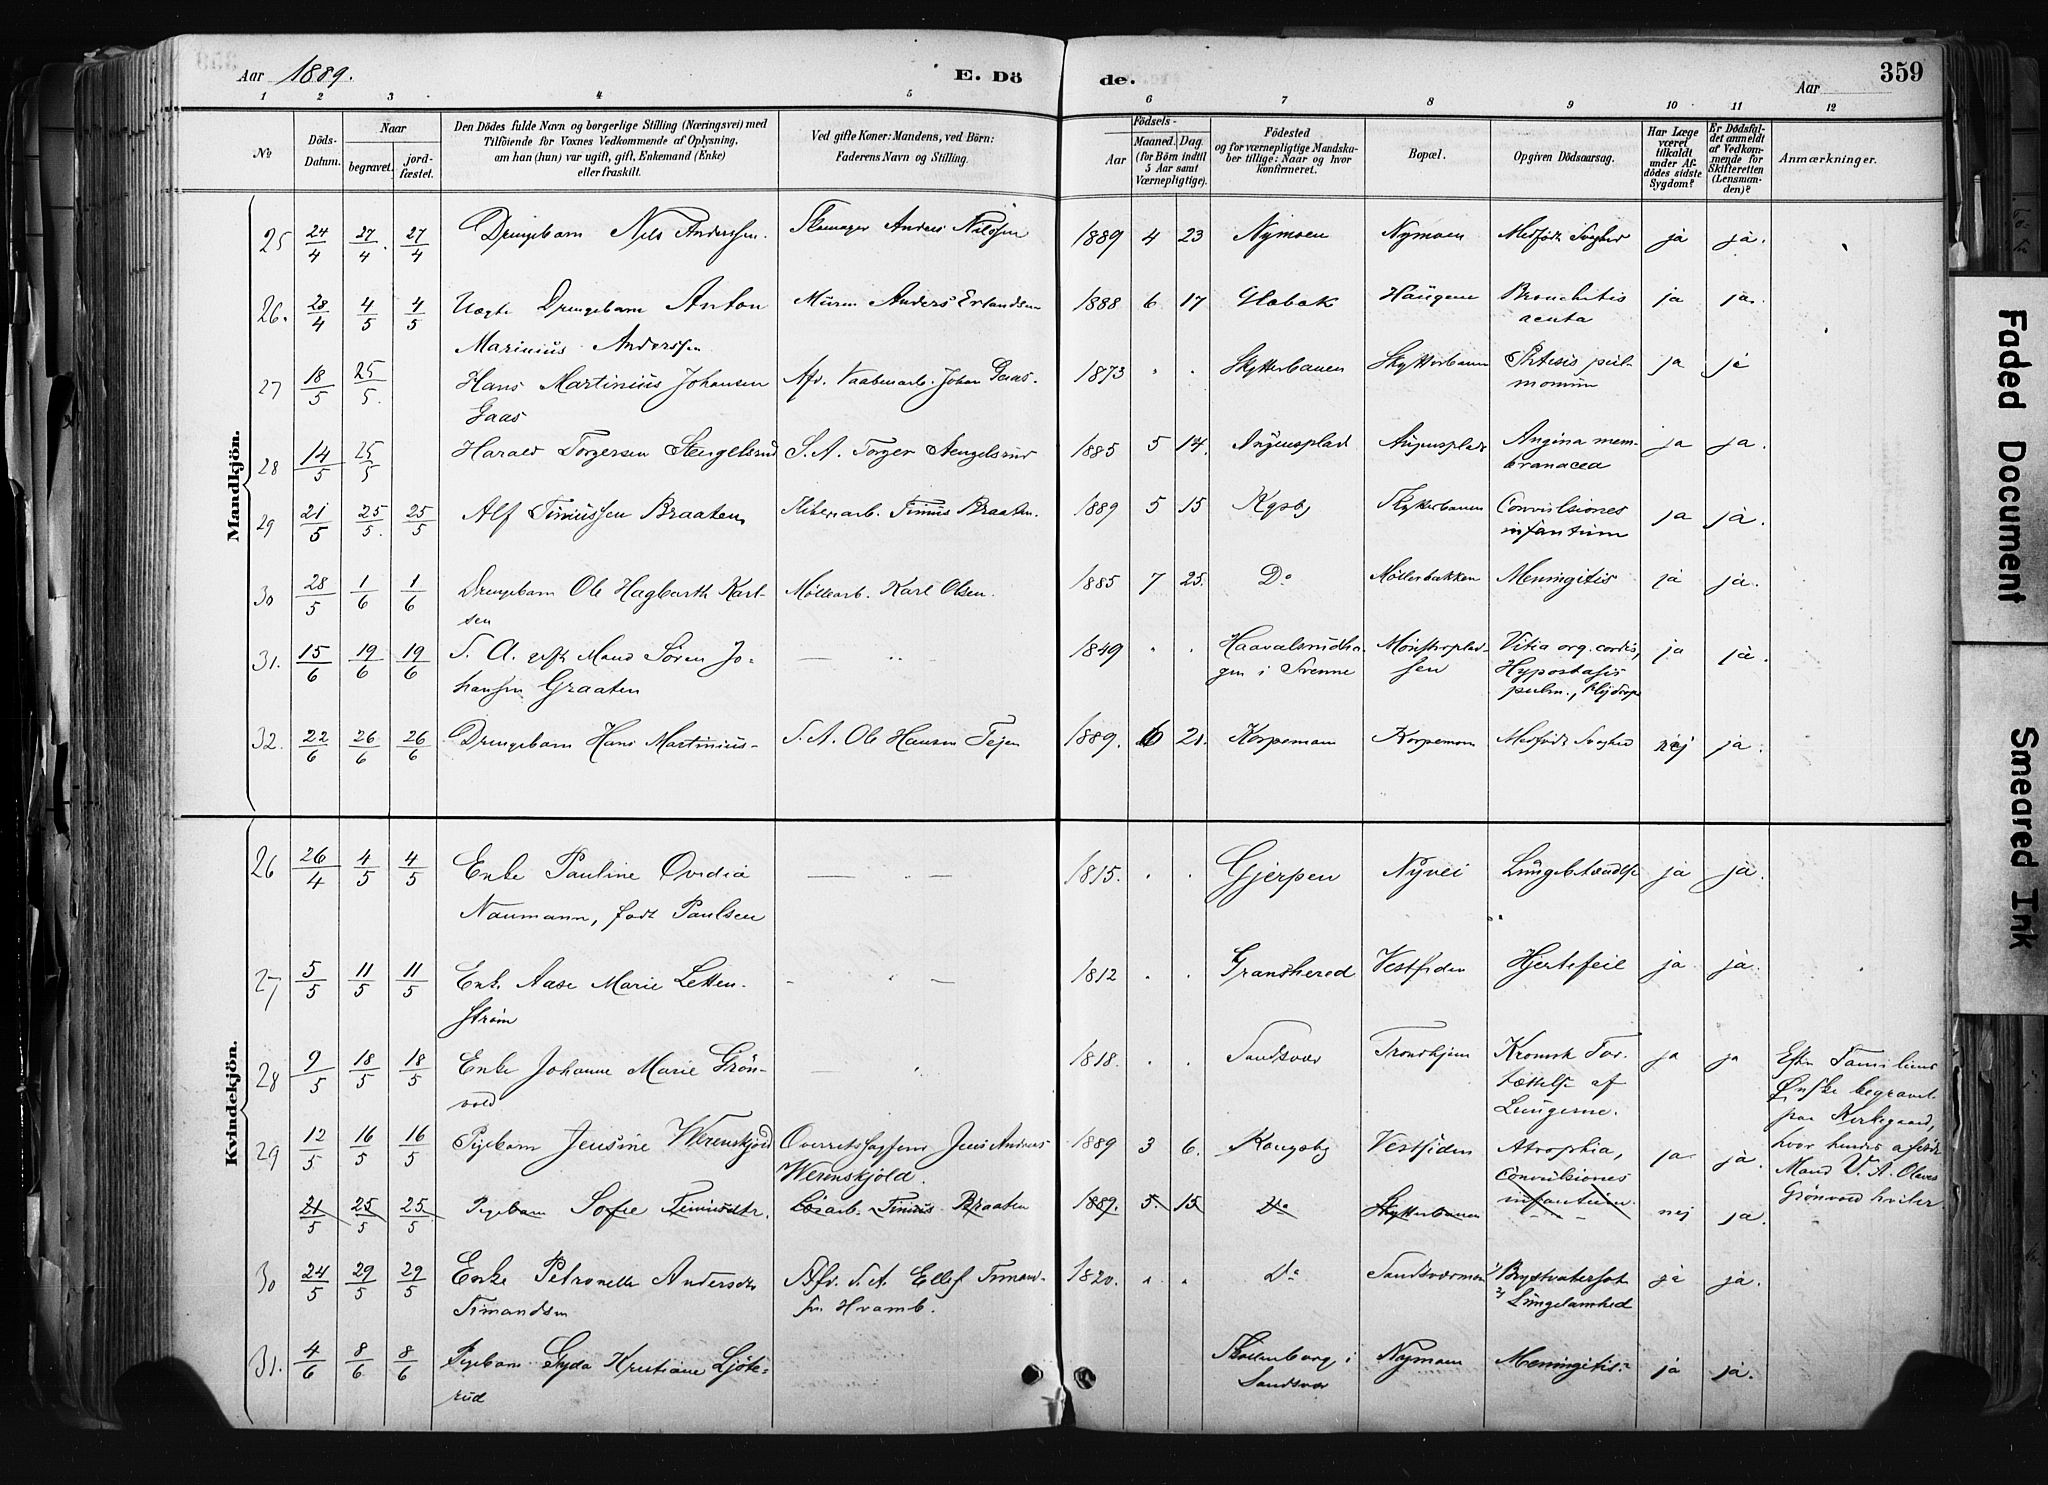 Aar 1889. E. Dö de. Aar 359
1 2 3 4 5 6 7 8 9 10 11 12
No
Döds-Datum.
Naar
begravet.
jordfæstet.
Den Dödes fulde Navn og borgerlige Stilling (Næringsvei) med
Tilföiende for Voxnes Vedkommende af Oplysning,
om han (hun) var ugift, gift, Enkemand (Enke)
eller fraskilt.
Ved gifte Koner: Mandens, ved Börn:
Faderens Navn og Stilling.
Födsels-
Aar
Maaned. Dag.
(for Börn indtil
5 Aar samt
Værnepligtige).
Födested
og for værnepligtige Mandskaber tillige: Naar og hvor
konfirmeret.
Bopæl.
Opgiven Dödsaarsag.
Har Læge
været
tilkaldt
under Afdödes sidste
Sygdom?
Er Dödsfaldet anmeldt
af Vedkommende for
Skifteretten
(Lensmanden)?
Anmærkninger.
Mandkjön.
25 24/4 27/4 27/4 Drengebarn Nils Anderssen. Skomager Anders Nilssen 1889 4 23 Nymoen Nymoen Medfödt Svaghed ja ja.
26. 28/4 4/5 4/5 Uægte Drengebarn Anton Murer Anders Erlandsen 1888 6 17 Labak Haugene Bronchitis ja ja.
Marinius Anderssen acuta
27 18/5 25/5. Hans Martinius Johansen Afd. Vaabenarb. Johan Gaas. 1873 " " Skytterbanen Skytterbanen Phtisis pul- ja ja
Gaas monum
28 14/5 25/5 Harald Torgersen Stengelsrud S. A. Torger Stengelsrud 1885 5 14. Angensplads Angensplads Angina mem- ja ja.
branacea
29 21/5 25/5. 25/5 Alf Tinussen Braaten Tinus Braaten. 1889 5 15 Kgsbg Skytterbanen Convulsiones ja ja.
infantum
30 28/5 1/6 1/6 Drengebarn Ole Hagbarth Karl- Møllearb. Karl Olsen. 1885 7 25. Do Møllerbakken Meningitis ja ja.
sen
31. 15/6 19/6 19/6 S. A. gift Mand Søren Jo- — " — 1849 " " Haavalsrudha- Mönsterplad- Vitia org. cordis, ja ja.
hansen Graaten gen i Svenne sen Hypostasis
pulm.,
32. 22/6 26/6 26/6 Drengebarn Hans Martinius- S. A. Ole Hansen Tejen 1889. 6 21. Korpemoen Korpemoen Medfödt Svaghed nej ja.
Kvindekjön.
26 26/4 4/5 4/5 Enke Pauline Ovidia — " — 1815. " " Gjerpen Nyvei Lungebetændelse ja ja.
Naumann, født Paulsen
27 5/5 11/5 11/5 Enke Aase Marie Letten- — " — 1812 " " Gransherred Vestsiden Hjertefeil ja ja.
strøm
28 9/5 18/5 18/5 Enke Johanne Marie Grön- — " 1818. " " Sandsvær Trondhjem Kronisk For- ja ja Efter Familiens
vold tættelse af Ønske begravet
Lungerne. paa Kirkegaard,
29 12/5 16/5 16/5 Pigebarn Jensine Werenskjold Overretssagfører Jens Anders 1889 3 6. Kongsbg Vestsiden Atrophia, ja ja. hvor hendes afdöde
Werenskjöld. Convulsiones Mand O. A. Olaves
21/5 25/5 25/5 Pigebarn Sofie Tinusdtr. Lösarb. Tinus Braaten 1889. 5. 15 Do Skytterbanen infantum nej ja. Grönvold hviler.
30 24/5 29/5 29/5 Enke Petronelle Andersdtr Afd. S. A. Ellef Simond- 1820. " " Do Sandsværmoen 1) Brystvatersot ja ja.
Simondsen sen Hvamb. 2) Lungelamhed
31. 4/6 8/6 8/6 Pigebarn Gyda Kristiane Ljöte- Skollenborg i Nymoen Meningitis ja ja.
rud Sandsvær
Faded Document
Smeared Ink